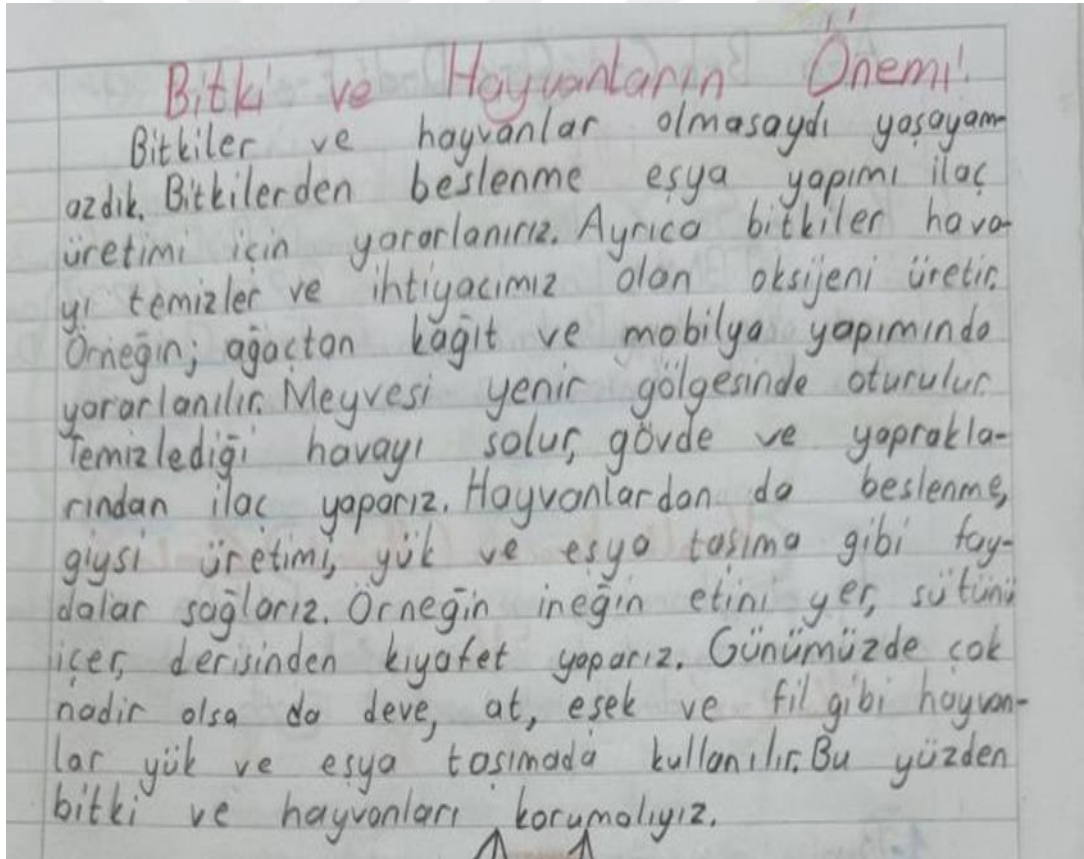 Bitki ve Hayvanların Önemi!
Bitkiler ve hayvanlar olmasaydı yaşayam-
azdık. Bitkilerden beslenme eşya yapımı ilaç
üretimi için yararlanırız. Ayrıca bitkiler hava-
yı temizler ve ihtiyacımız olan oksijeni üretir.
Örneğin; ağaçtan kağıt ve mobilya yapımında
yararlanılır. Meyvesi yenir gölgesinde oturulur.
Temizlediği havayı solur, gövde ve yaprakla-
rından ilaç yaparız. Hayvanlardan da beslenme,
giysi üretimi, yük ve eşya taşıma gibi fay-
dalar sağlarız. Örneğin ineğin etini yer, sütünü
içer, derisinden kıyafet yaparız. Günümüzde çok
nadir olsa da deve, at, eşek ve fil gibi hayvan-
lar yük ve eşya taşımada kullanılır. Bu yüzden
bitki ve hayvanları korumalıyız.